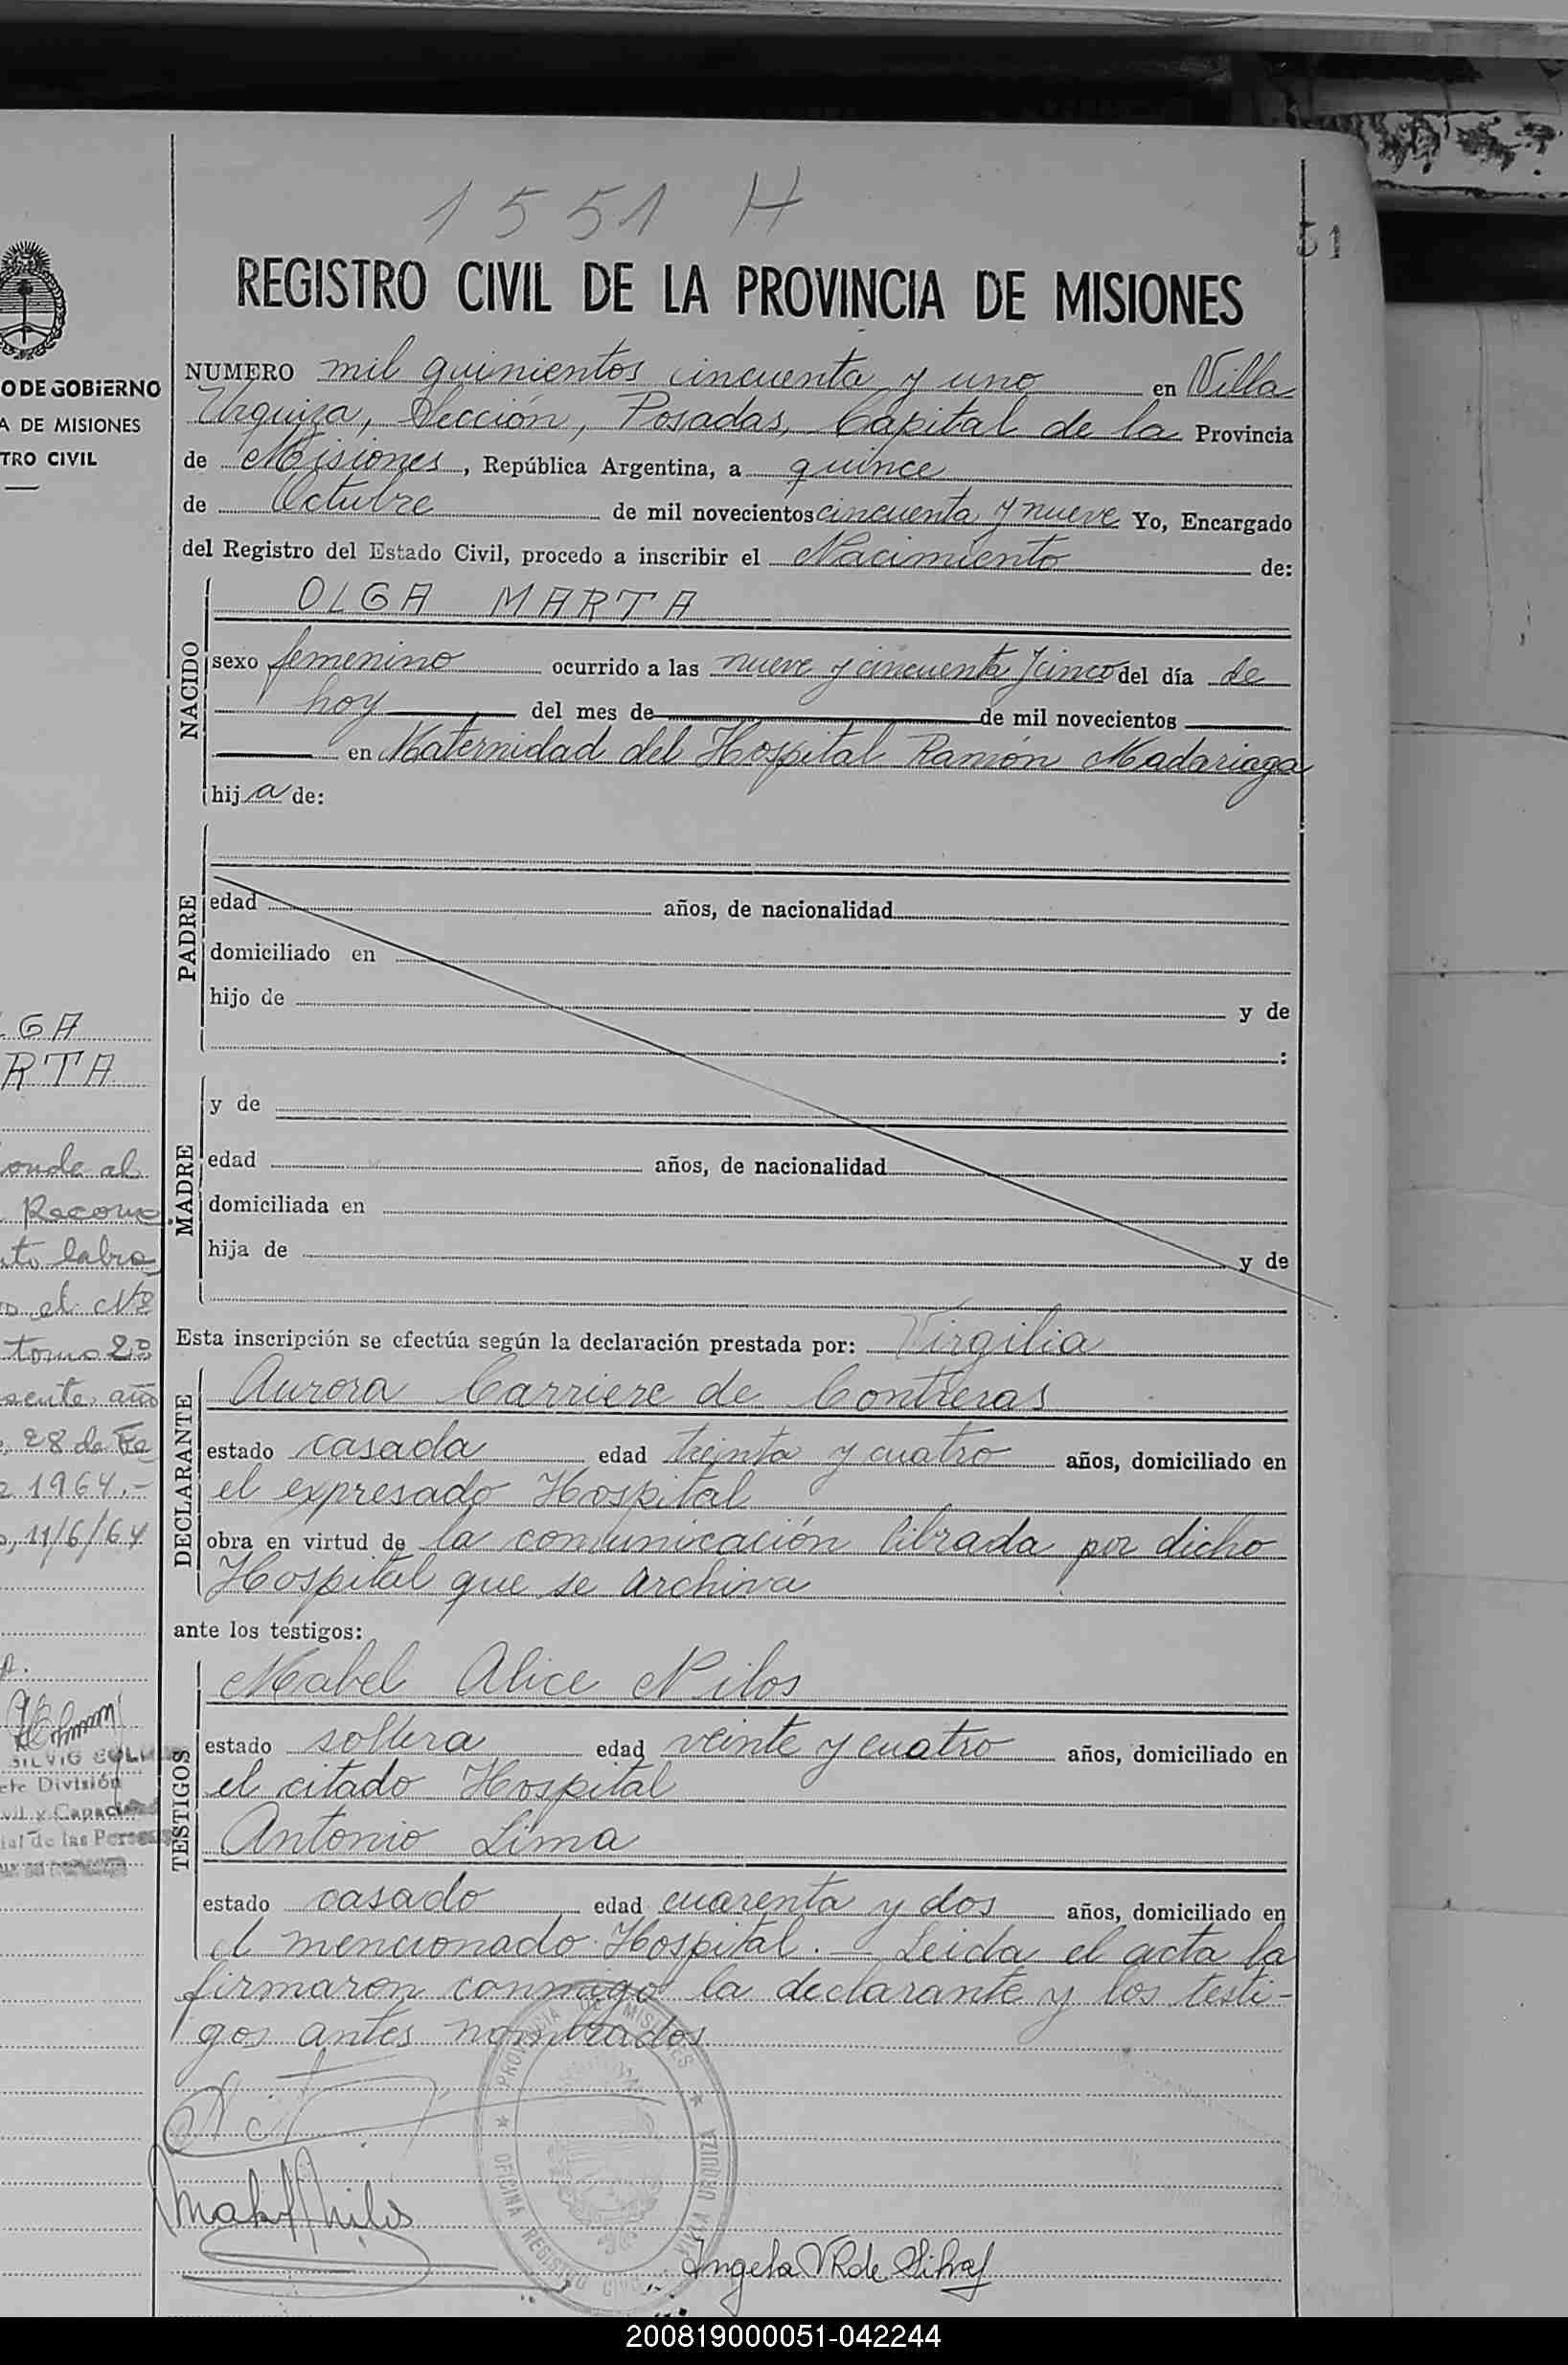 1551 H
51
REGISTRO CIVIL DE LA PROVINCIA DE MISIONES
NUMERO mil quinientos cincuenta y uno en Villa
Urquiza, Sección, Posadas, Capital de la Provincia
de Misiones, República Argentina, a quince
de Octubre de mil novecientos cincuenta y nueve Yo, Encargado
del Registro del Estado Civil, procedo a inscribir el Nacimiento de:
NACIDO
OLGA MARTA
sexo femenino ocurrido a las nueve y cincuenta y cinco del día de
hoy del mes de de mil novecientos
en Maternidad del Hospital Ramón Madariaga
hija de:
PADRE
edad años, de nacionalidad
domiciliado en
hijo de y de
:
MADRE
y de
edad años, de nacionalidad
domiciliada en
hija de y de
Esta inscripción se efectúa según la declaración prestada por: Virgilia
DECLARANTE
Aurora Carriere de Contreras
estado casada edad treinta y cuatro años, domiciliado en
el expresado Hospital
obra en virtud de la comunicación librada por dicho
Hospital que se archiva
ante los testigos:
TESTIGOS
Mabel Alice Nilos
estado soltera edad veinte y cuatro años, domiciliado en
el citado Hospital
Antonio Lima
estado casado edad cuarenta y dos años, domiciliado en
el mencionado Hospital. — Leida el acta la
firmaron conmigo la declarante y los testi-
gos antes nombrados
PROVINCIA DE MISIONES
OFICINA REGISTRO CIVIL
VILLA URQUIZA
Mabel Nilos
Angela V R de Silva
O DE GOBIERNO
A DE MISIONES
TRO CIVIL
LGA
RTA
onde al
Recono
to labra
o el Nº
tomo 2º
sente año
28 de Fe
1964.-
11/6/64
SILVIO
Jefe División
Civil y Capaci
ial de las Perso
200819000051-042244